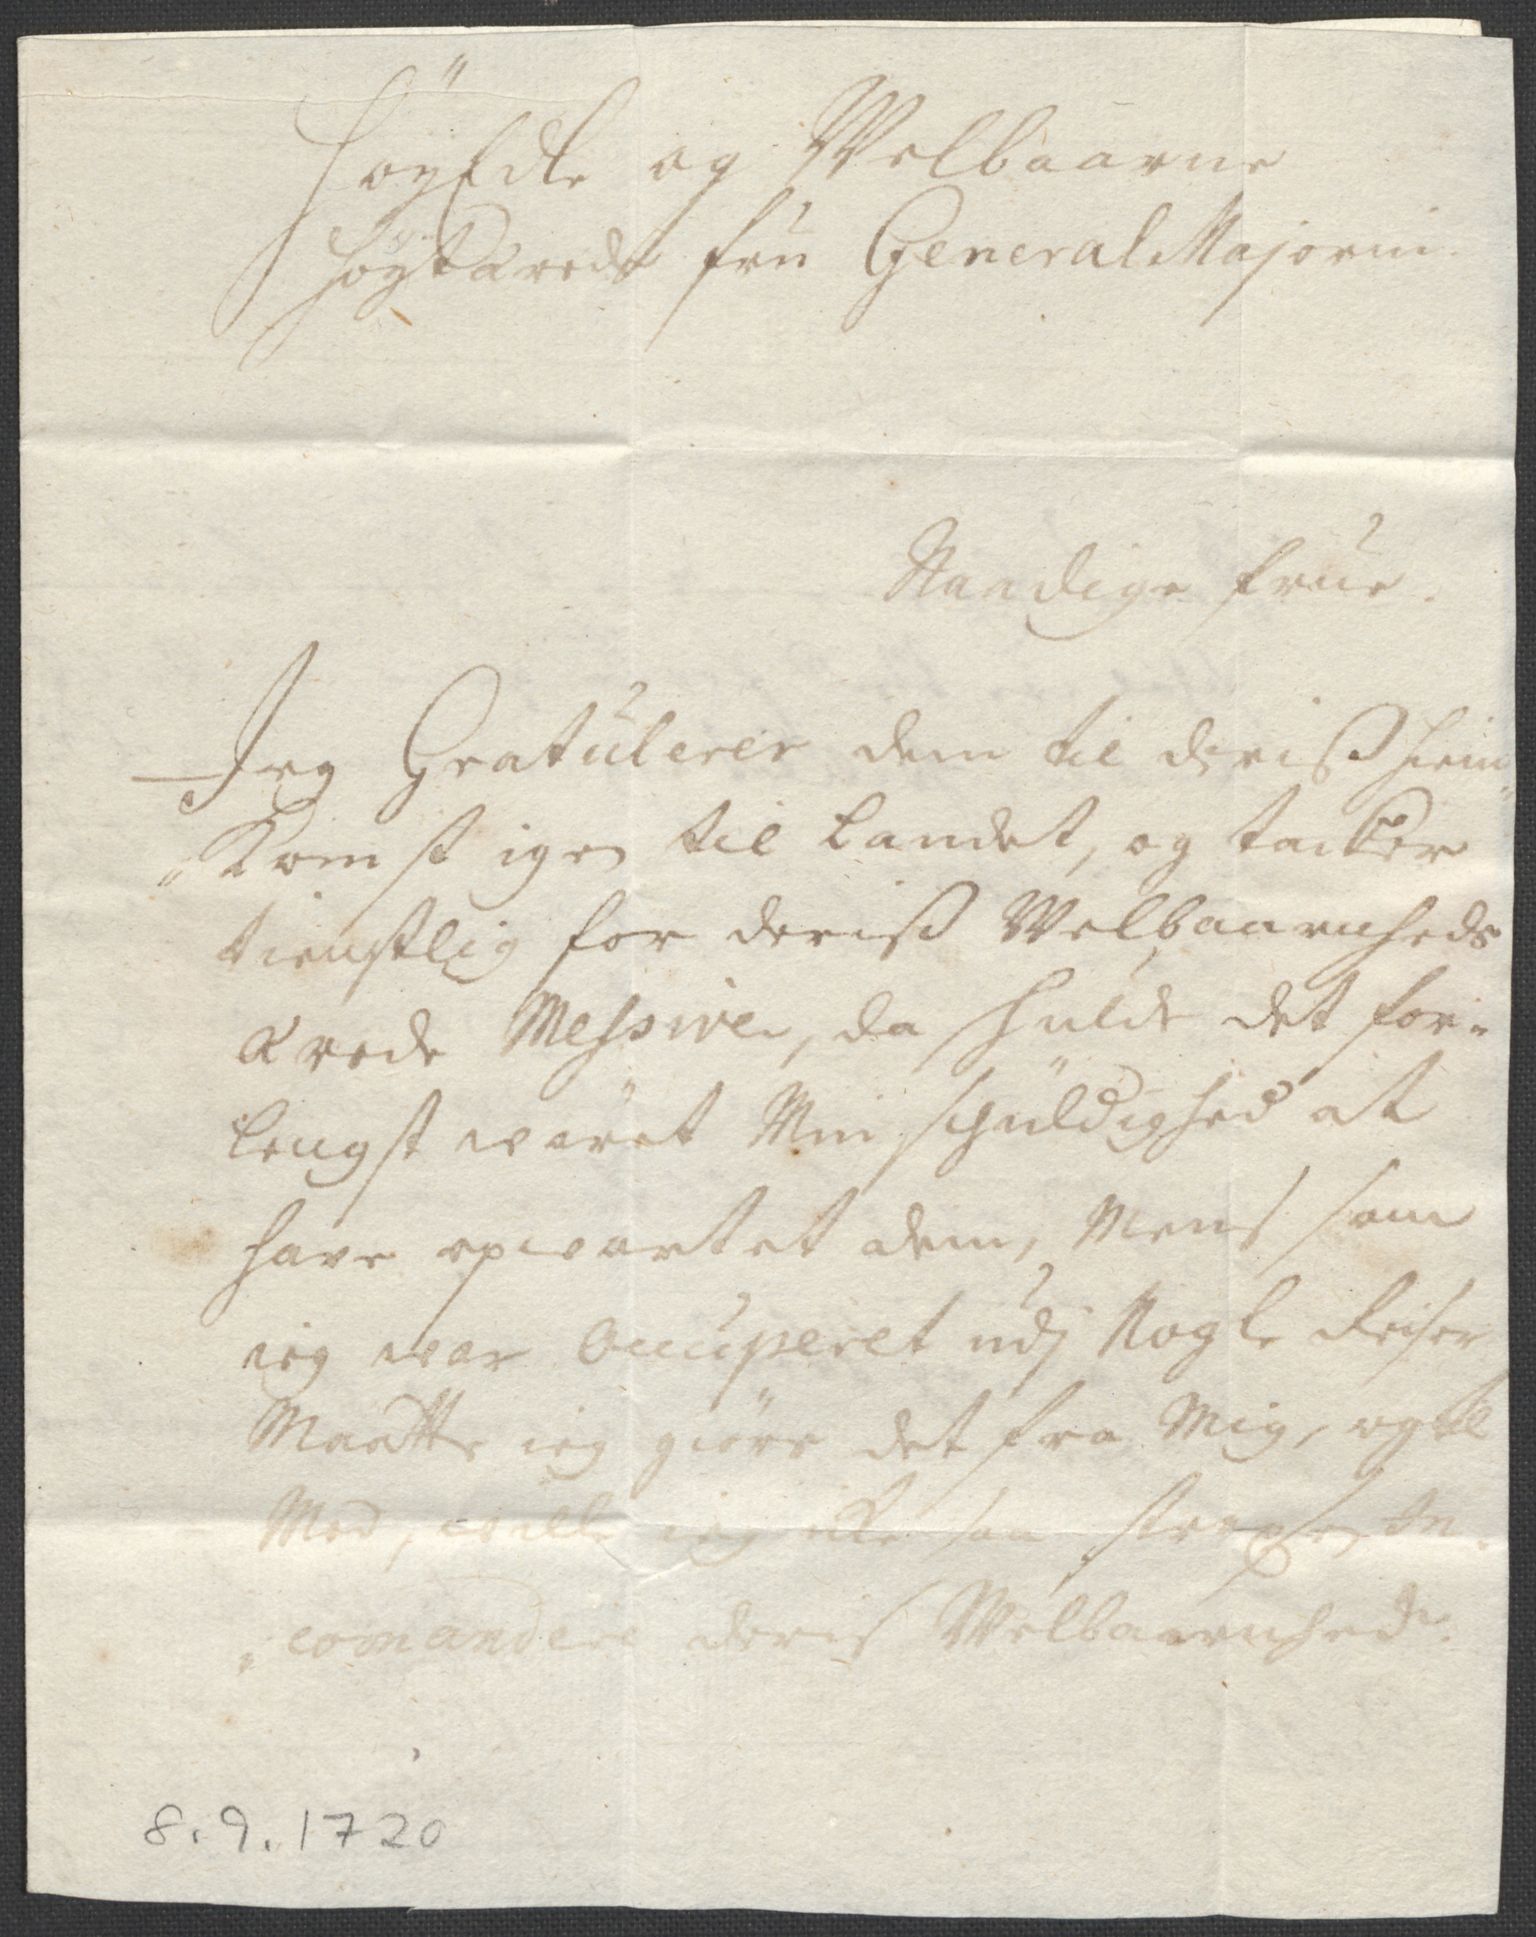 HöyEdle og Welbaarne
Höytærede frü General Majorin
Naadige früe.
Jeg Gratulerer dem til deriß hiem,,
,,komst igen til Landet, og tacker
tienstlig for deriß Welbaarnheds
ærede Messive, da skulde det for=
længst wäret Min schüldighed at
have opwartet dem, Mens som
ieg war Occuperet udj Nogle Reiser
Maatte ieg giöre det fra Mig, og til
Med, wille ieg icke saa strax In
,,comandere deris Welbaarnhed.
8.9.1720